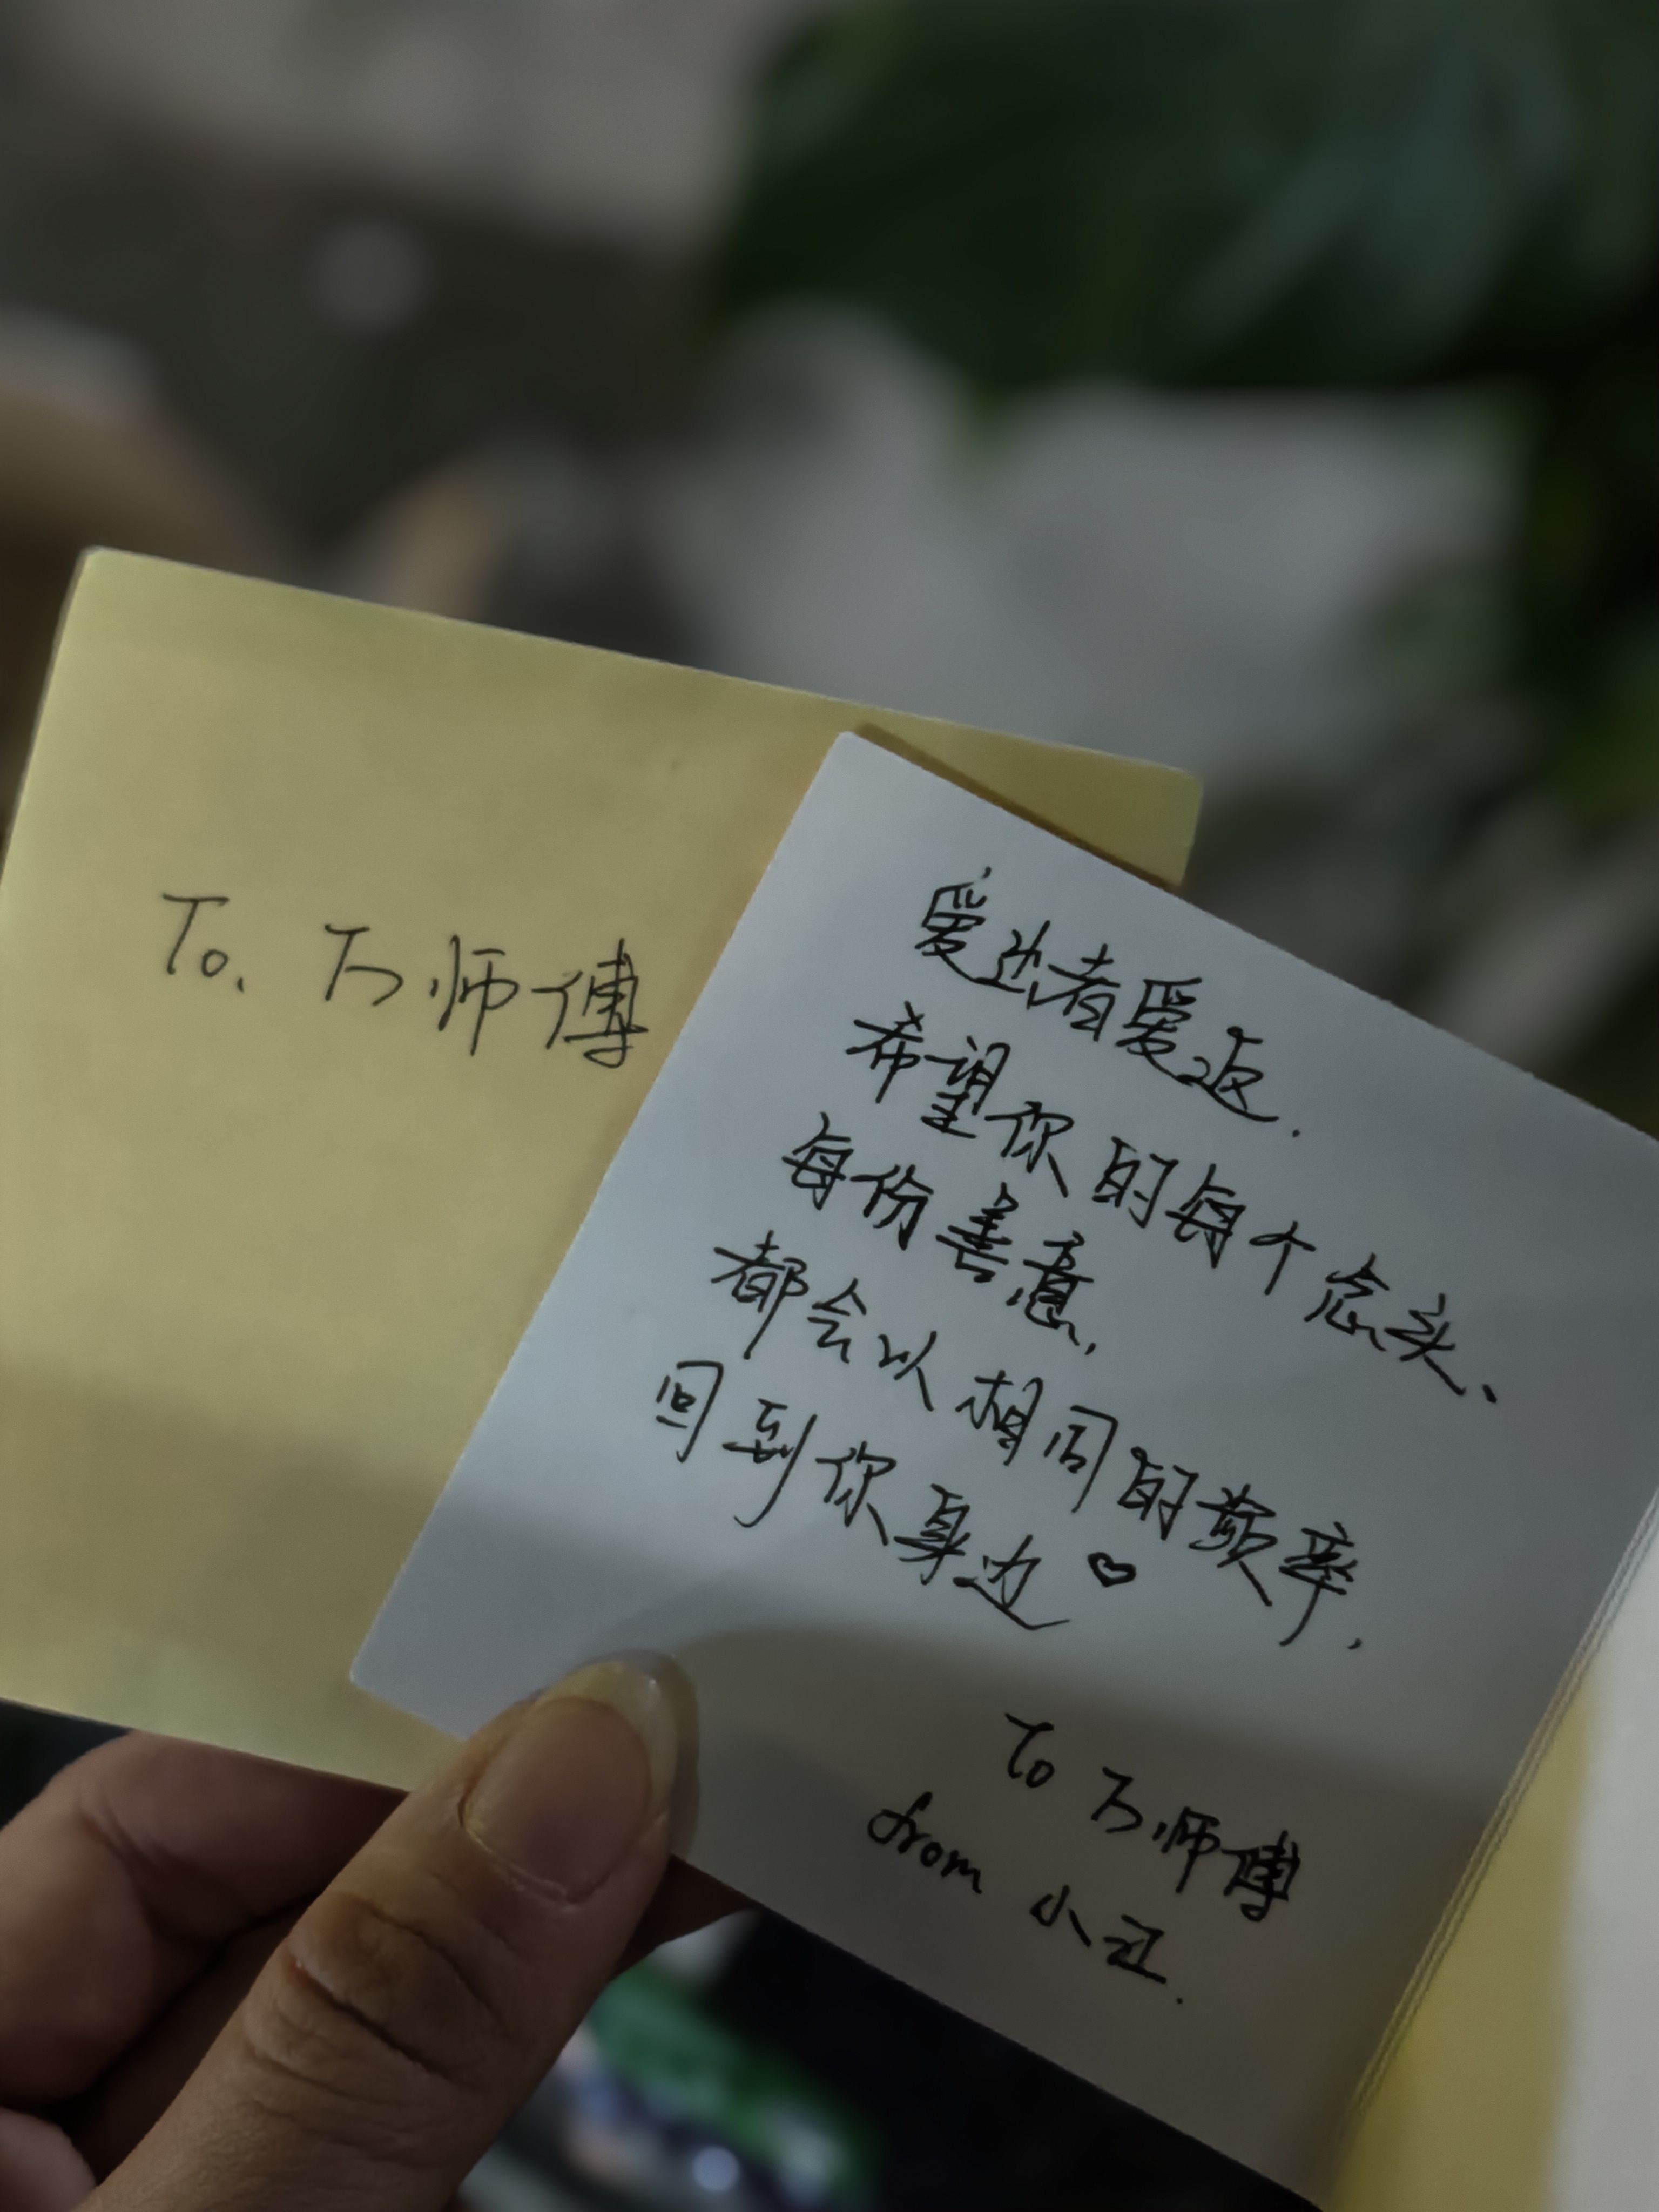 To. 万师傅
爱出者爱返.
希望你的每个念头、
每份善意,
都会以相同的频率,
回到你身边♡
To 万师傅
from 小江.